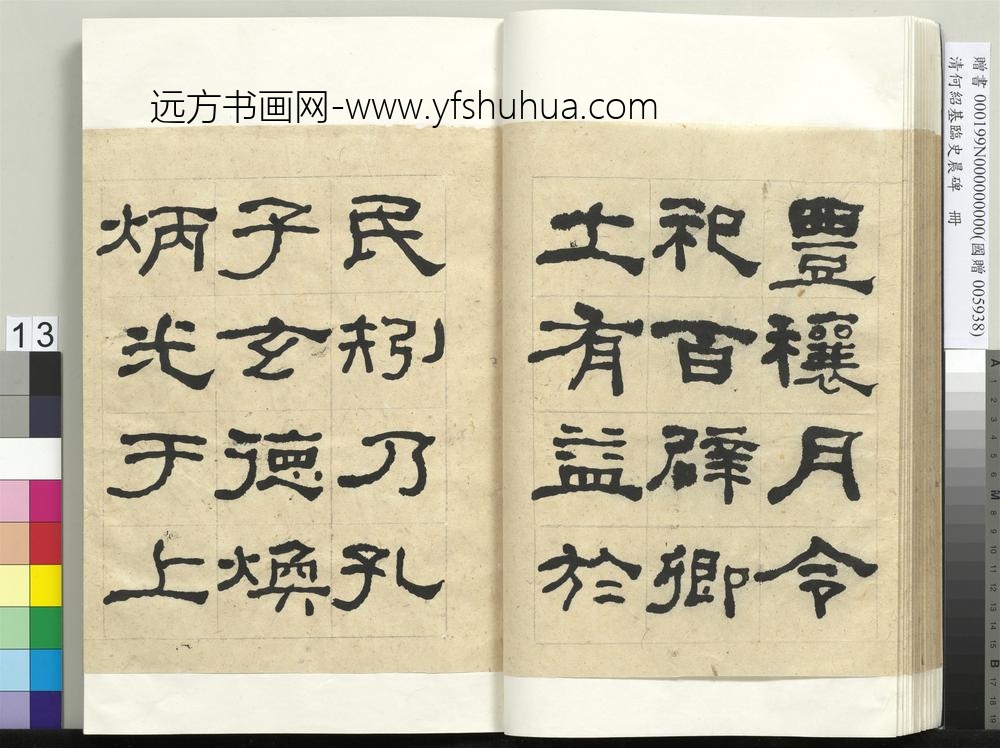 远方书画网-www.yfshuhua.com
豐穰月令
祀百辟卿
士有益於
民矧乃孔
子玄德煥
炳光于上
贈書 000199N000000000(國贈 005938)
清何紹基臨史晨碑 冊
13
A 1 2 3 4 5 6 M 8 9 10 11 12 13 14 15 B 17 18 19